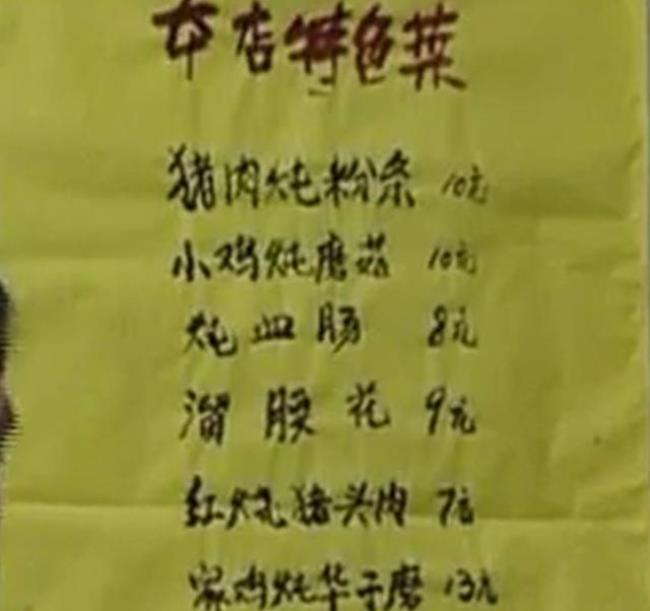 本店特色菜
猪肉炖粉条 10元
小鸡炖磨菇 10元
炖血肠 8元
溜腰花 9元
红烧猪头肉 7元
家鸡炖华子磨 13元